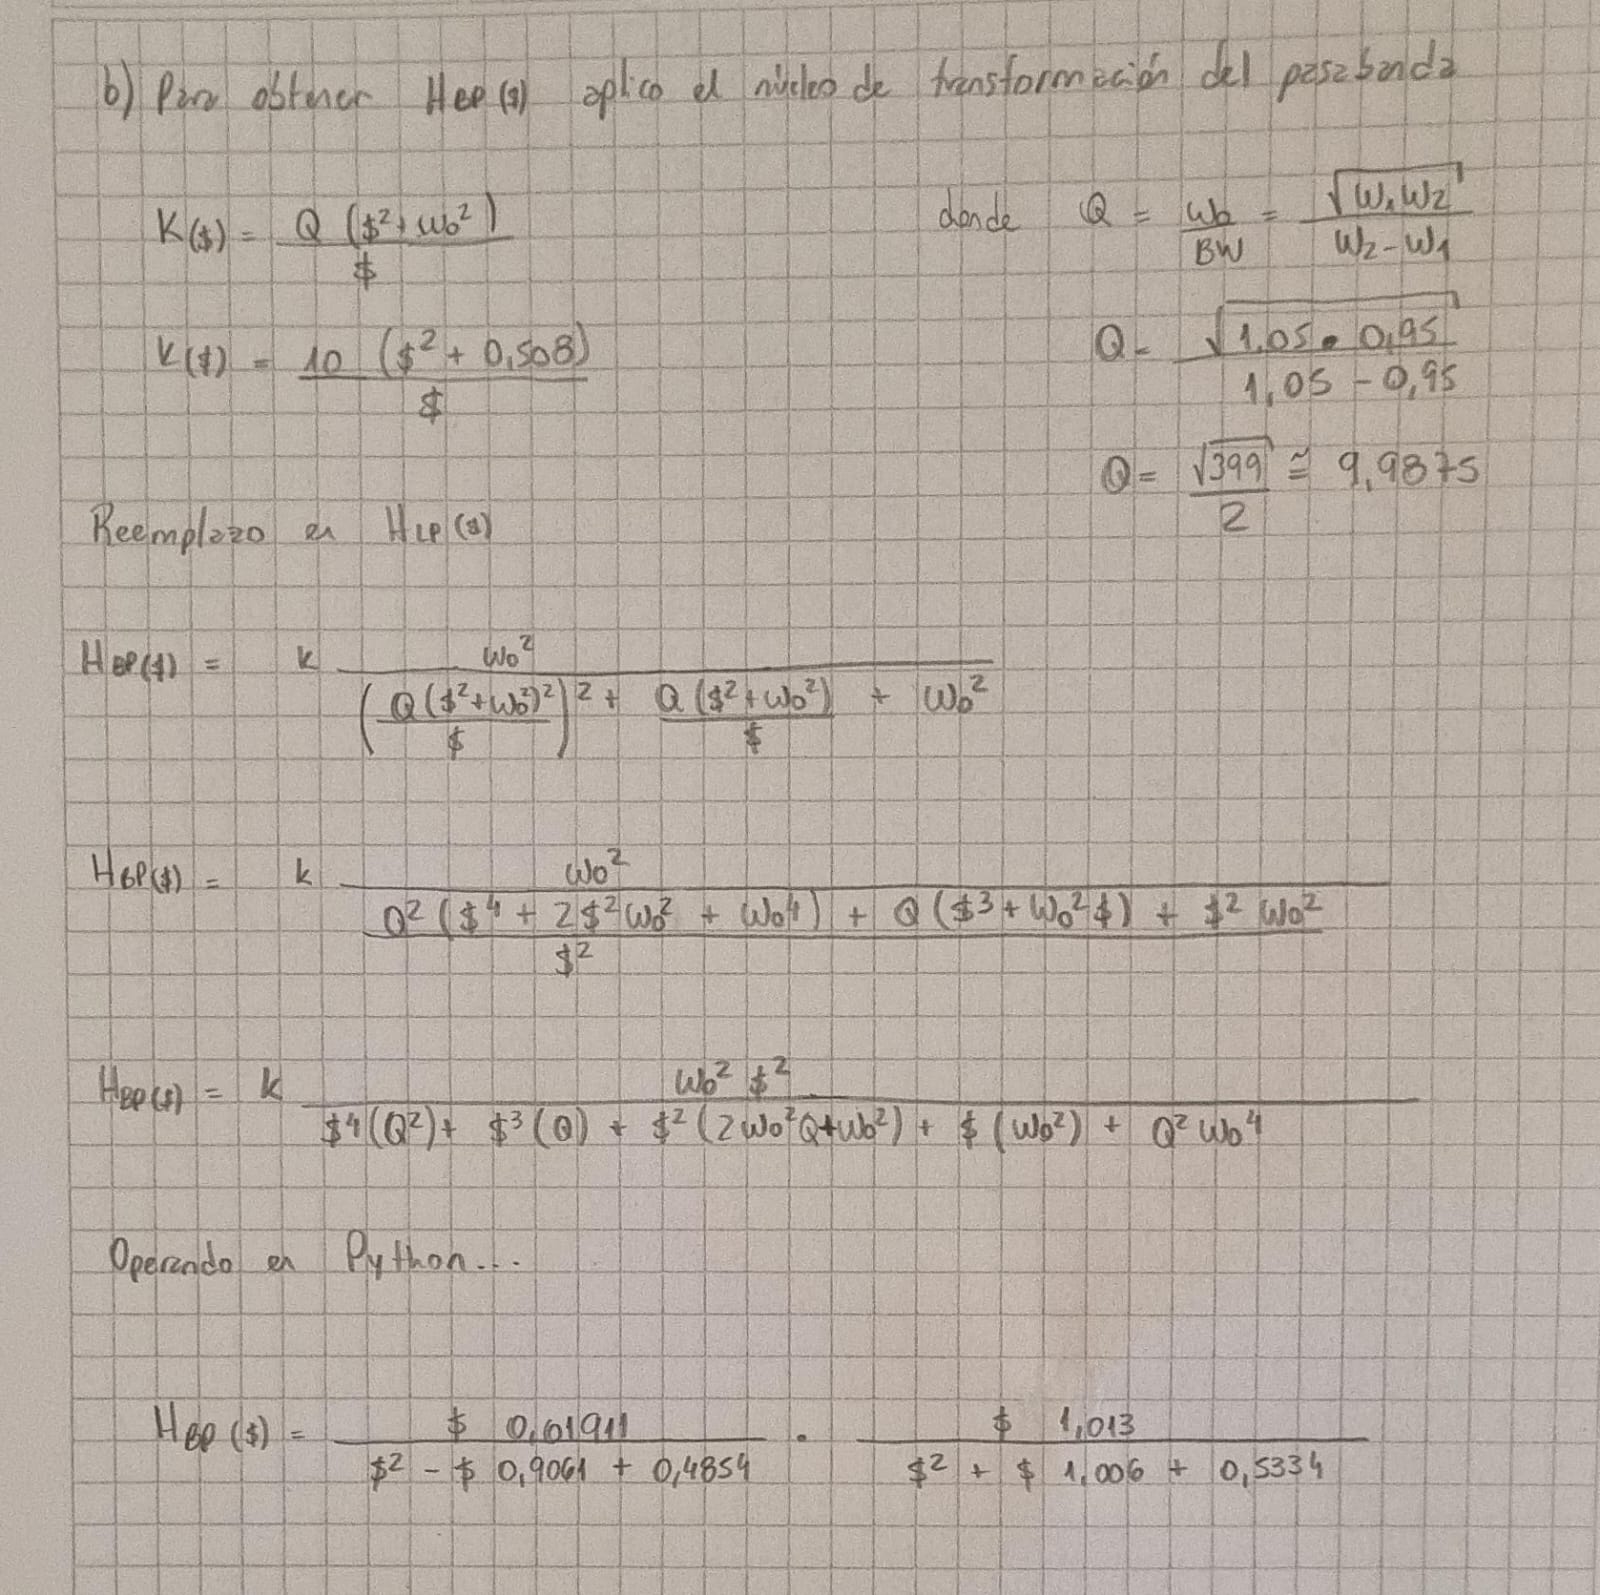 b) Para obtener HBP($) aplico el núcleo de transformación del pasabanda
K($) = Q ($² + ω₀²) / $
donde Q = ω₀ / BW = √(ω₁ω₂) / (ω₂-ω₁)
K($) = 10 ($² + 0,508) / $
Q = √(1,05 • 0,95) / (1,05 - 0,95)
Q = √399 / 2 ≅ 9,9875
Reemplazo en HLP($)
HBP($) = k ω₀² / ((Q($²+ω₀²)²/$)² + Q($²+ω₀²)/$ + ω₀²)
HBP($) = k ω₀² / ((Q²($⁴ + 2$²ω₀² + ω₀⁴) + Q($³ + ω₀²$) + $² ω₀²) / $²)
HBP($) = k ω₀² $² / ($⁴(Q²) + $³(Q) + $²(2ω₀²Q+ω₀²) + $(ω₀²) + Q² ω₀⁴)
Operando en Python...
HBP($) = $ 0,01911 / ($² - $ 0,9061 + 0,4854) . $ 1,013 / ($² + $ 1,006 + 0,5334)